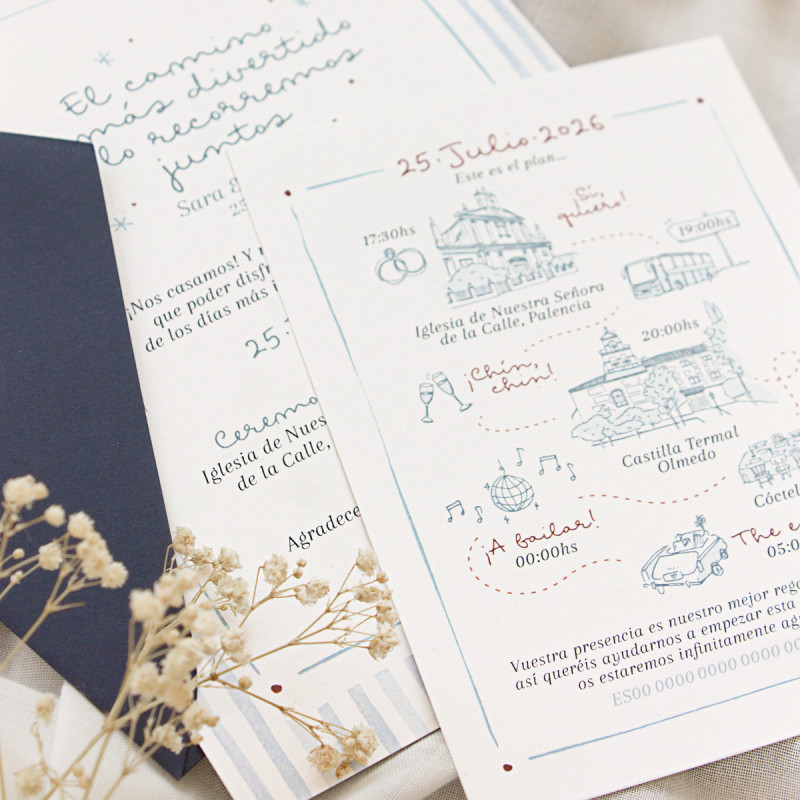 El camino
más divertido
lo recorremos
juntos
Sara &
25
¡Nos casamos! Y
que poder disfr
de los días más
25.
Ceremo
Iglesia de Nues
de la Calle,
Agradece
25·Julio·2026
Este es el plan...
17:30hs
Sí,
quiero!
19:00hs
Iglesia de Nuestra Señora
de la Calle, Palencia
20:00hs
¡Chin,
chin!
Castilla Termal
Olmedo
Cóctel
¡A bailar!
00:00hs
The e
05:0
Vuestra presencia es nuestro mejor reg
así queréis ayudarnos a empezar esta
os estaremos infinitamente ag
ES00 0000 0000 0000 00